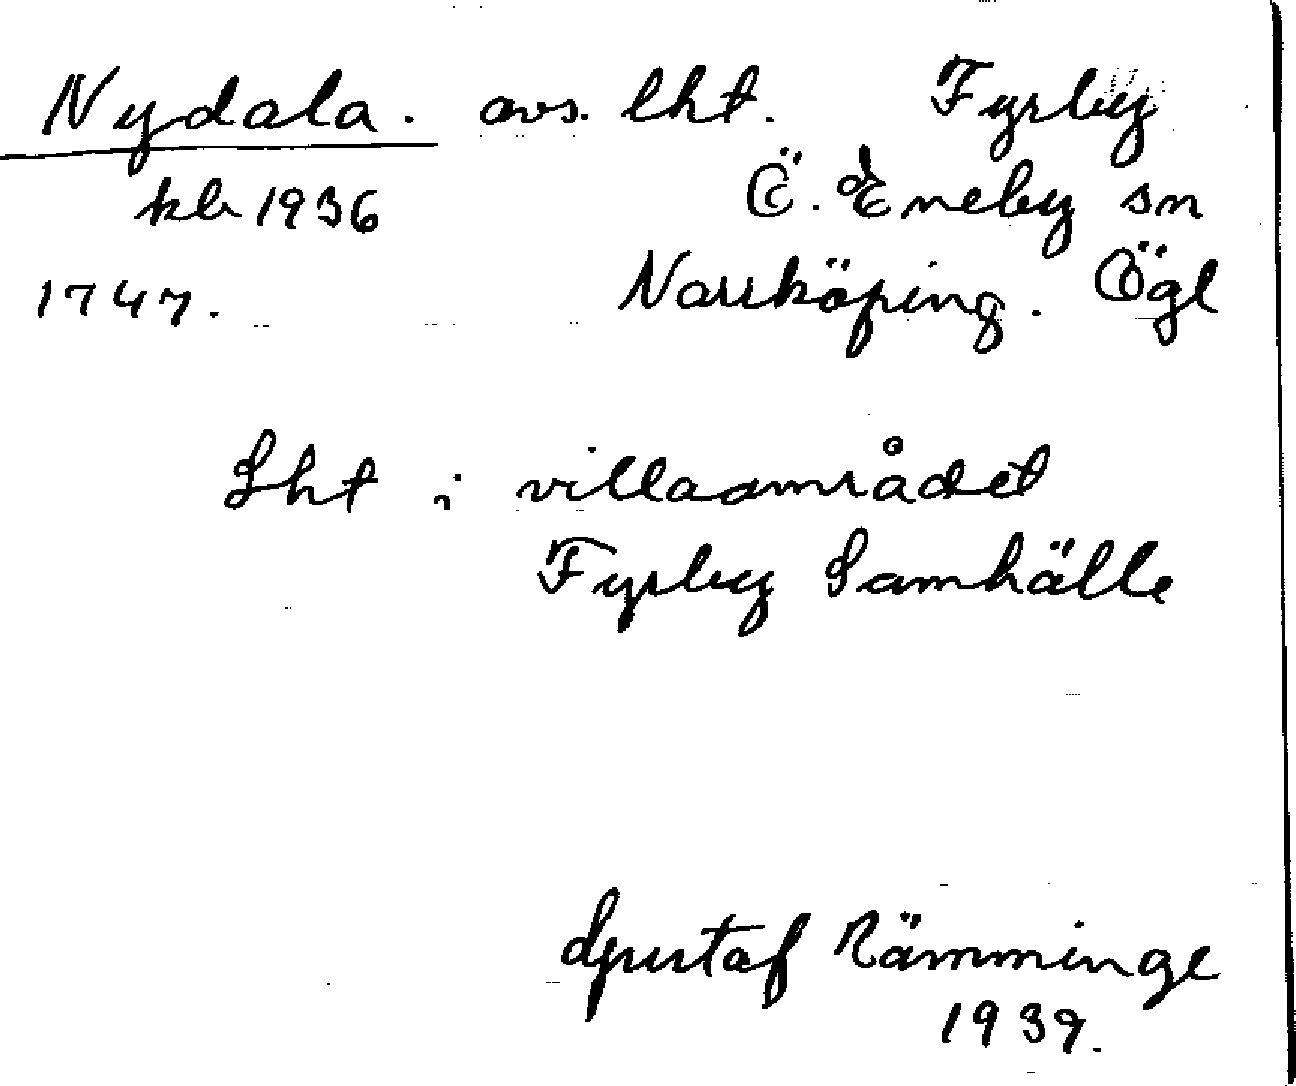 Nydala. avs. lht. Fyrby
kb 1936 Ö. Eneby sn
1747. Norrköping. Ögl
Lht i villaområdet
Fyrby Samhälle
Gustaf Rämminge
1939.